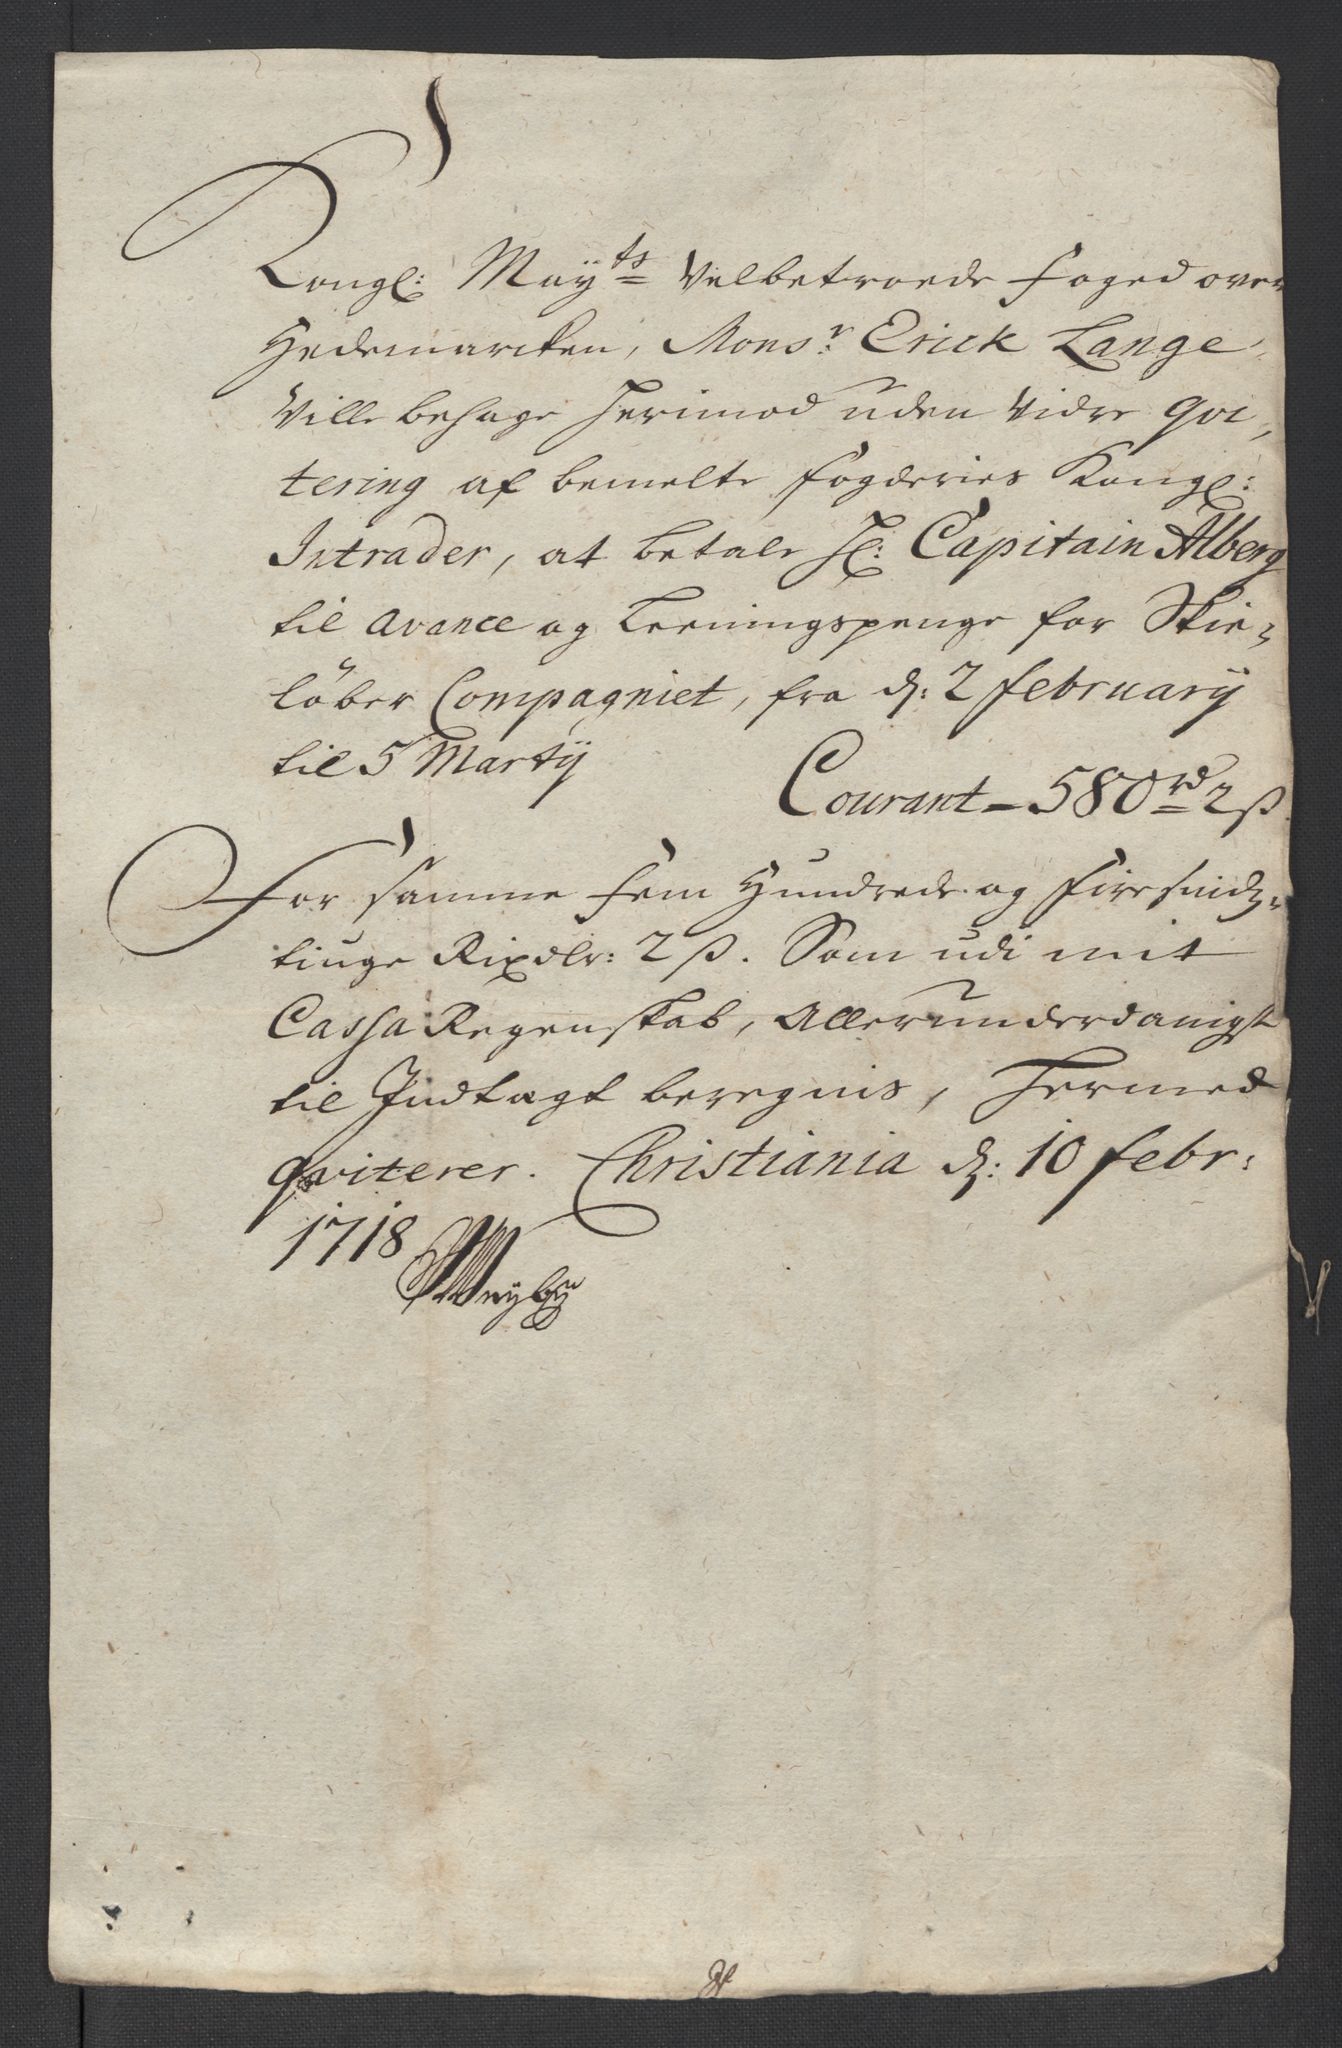 Kongl: Mayts Velbetroede Foged over
Hedemarcken, Monsr: Erick Lange
Ville behage herimod uden Vidre qvi,
tering af bemelte fogderies Kongl:
Intrader, at betale H: Capitain Alberg
til avance og Leeningspenge for Skie-
löber Compagniet, fra d: 2 february
til 5 Martij
Courant - 580 rd 2 ß
For samme Fem Hundrede og Firesinds-
tiuge Rixdlr: 2 ß. Som udi mit
Cassa Regenskab, Allerunderdanigst
til Indtægt beregnis, hermed
qviterer. Christiania d: 10 febr:
1718